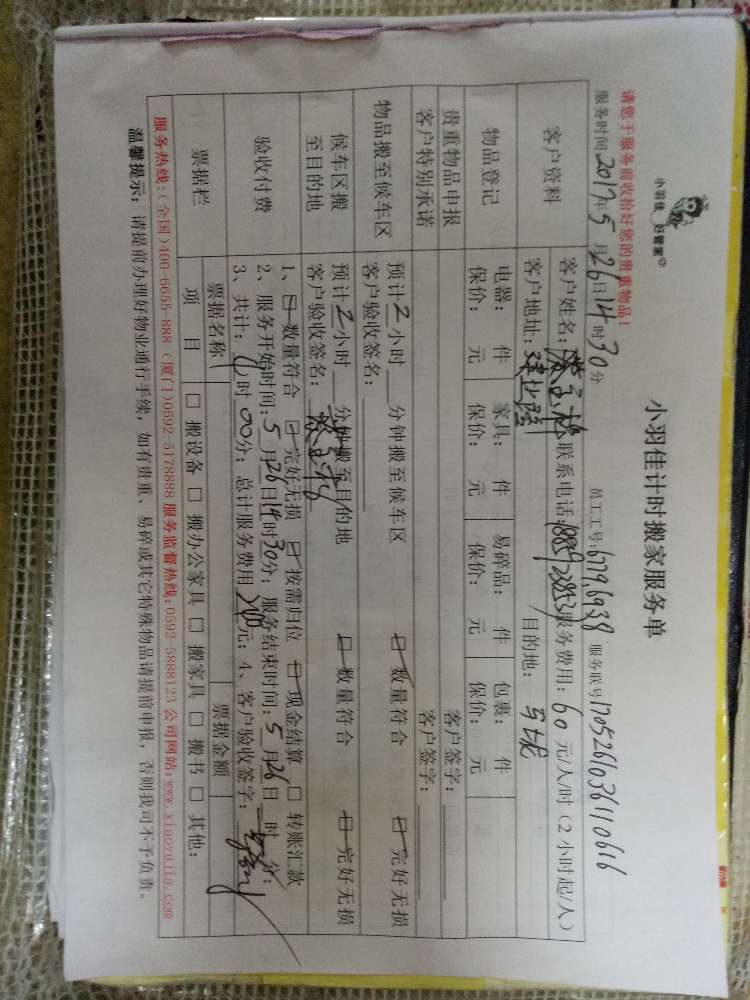 小羽佳 好管家
小羽佳计时搬家服务单
请您于服务前收拾好您的贵重物品!
员工工号:679,6938 服务联号:1705261036110616
服务时间2017年5月26日14时30分
客户资料
客户姓名: 联系电话: 服务费用:60元/人/时(2小时起/人)
客户地址: 目的地:
物品登记
电器: 件 家具: 件 易碎品: 件 包裹: 件
保价: 元 保价: 元 保价: 元 保价: 元
贵重物品申报 客户签字:
客户特别承诺 客户签字:
物品搬至候车区
预计2小时 分钟搬至候车区 ☑数量符合 ☑完好无损
客户验收签名:
候车区搬至目的地
预计2小时 分钟搬至目的地 ☑数量符合 ☑完好无损
客户验收签名:
验收付费
1、☑数量符合 ☑完好无损 ☑按需归位 ☑现金结算 □转账汇款
2、服务开始时间:5月26日14时30分;服务结束时间:5月26日 时 分;
3、共计: 时00分;总计服务费用 元;4、客户验收签字:
票据栏
票据名称 票据金额
项目 □搬设备 □搬办公家具 □搬家具 □搬书 □其他:
服务热线:(全国)400-6655-888 (厦门)0592-5178888 服务监督热线:0592-5888123 公司网站:www.xiaoyujia.com
温馨提示:请提前办理好物业通行手续,如有贵重、易碎或其它特殊物品请提前申报,否则我司不予负责。